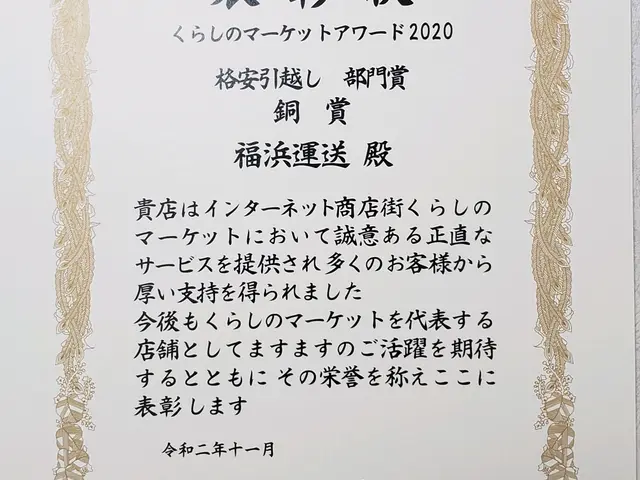 表彰状
くらしのマーケットアワード2020
格安引越し 部門賞
銅 賞
福浜運送 殿
貴店はインターネット商店街くらしの
マーケットにおいて誠意ある正直な
サービスを提供され多くのお客様から
厚い支持を得られました
今後もくらしのマーケットを代表する
店舗としてますますのご活躍を期待
するとともに その栄誉を称えここに
表彰します
令和二年十一月